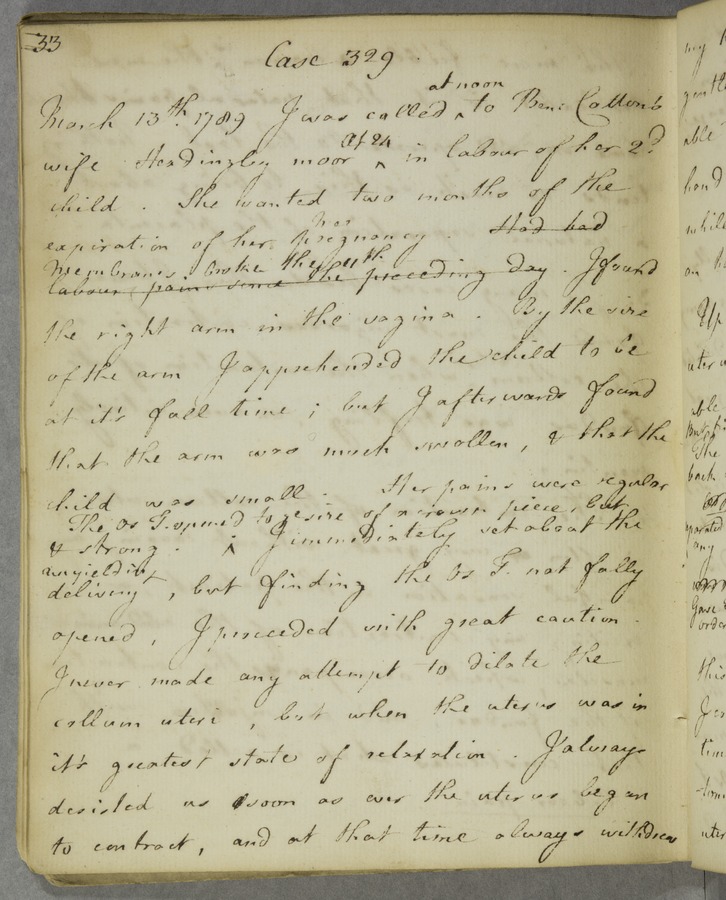 33
Case 329.
at noon
March 13th. 1789 I was called ^ to Benj
Æt 24
wife Headingley moor ^ in labour of her 2d.
child. She wanted two months of the
expiration of her pregnancy. Had had
her
Membranes broke the 12th
labour pains since the preceding day. I found
the right arm in the vagina. By the size
of the arm I apprehended the child to be
at it's full time; but I afterwards found
that the arm was much swollen, & that the
child was small. Her pains were regular
The Os T. opened to ye size of a crown piece, but
& strong. ^ I immediately set about the
unyielding
delivery, but finding the Os T. not fully
opened, I proceeded with great caution.
I never made any attempt to dilate the
collum uteri, but when the uterus was in
it's greatest state of relaxation. I always
desisted as soon as ever the uterus began
to contract, and at that time always withdrew